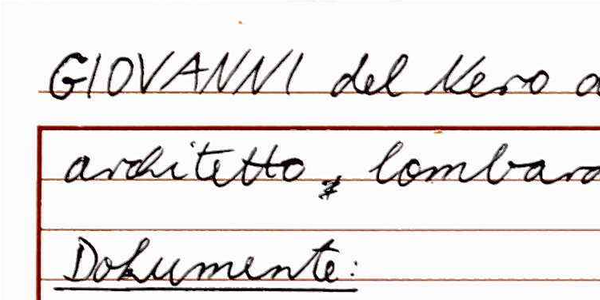 GIOVANNI del Nero
architetto, lombard
Dokumente: